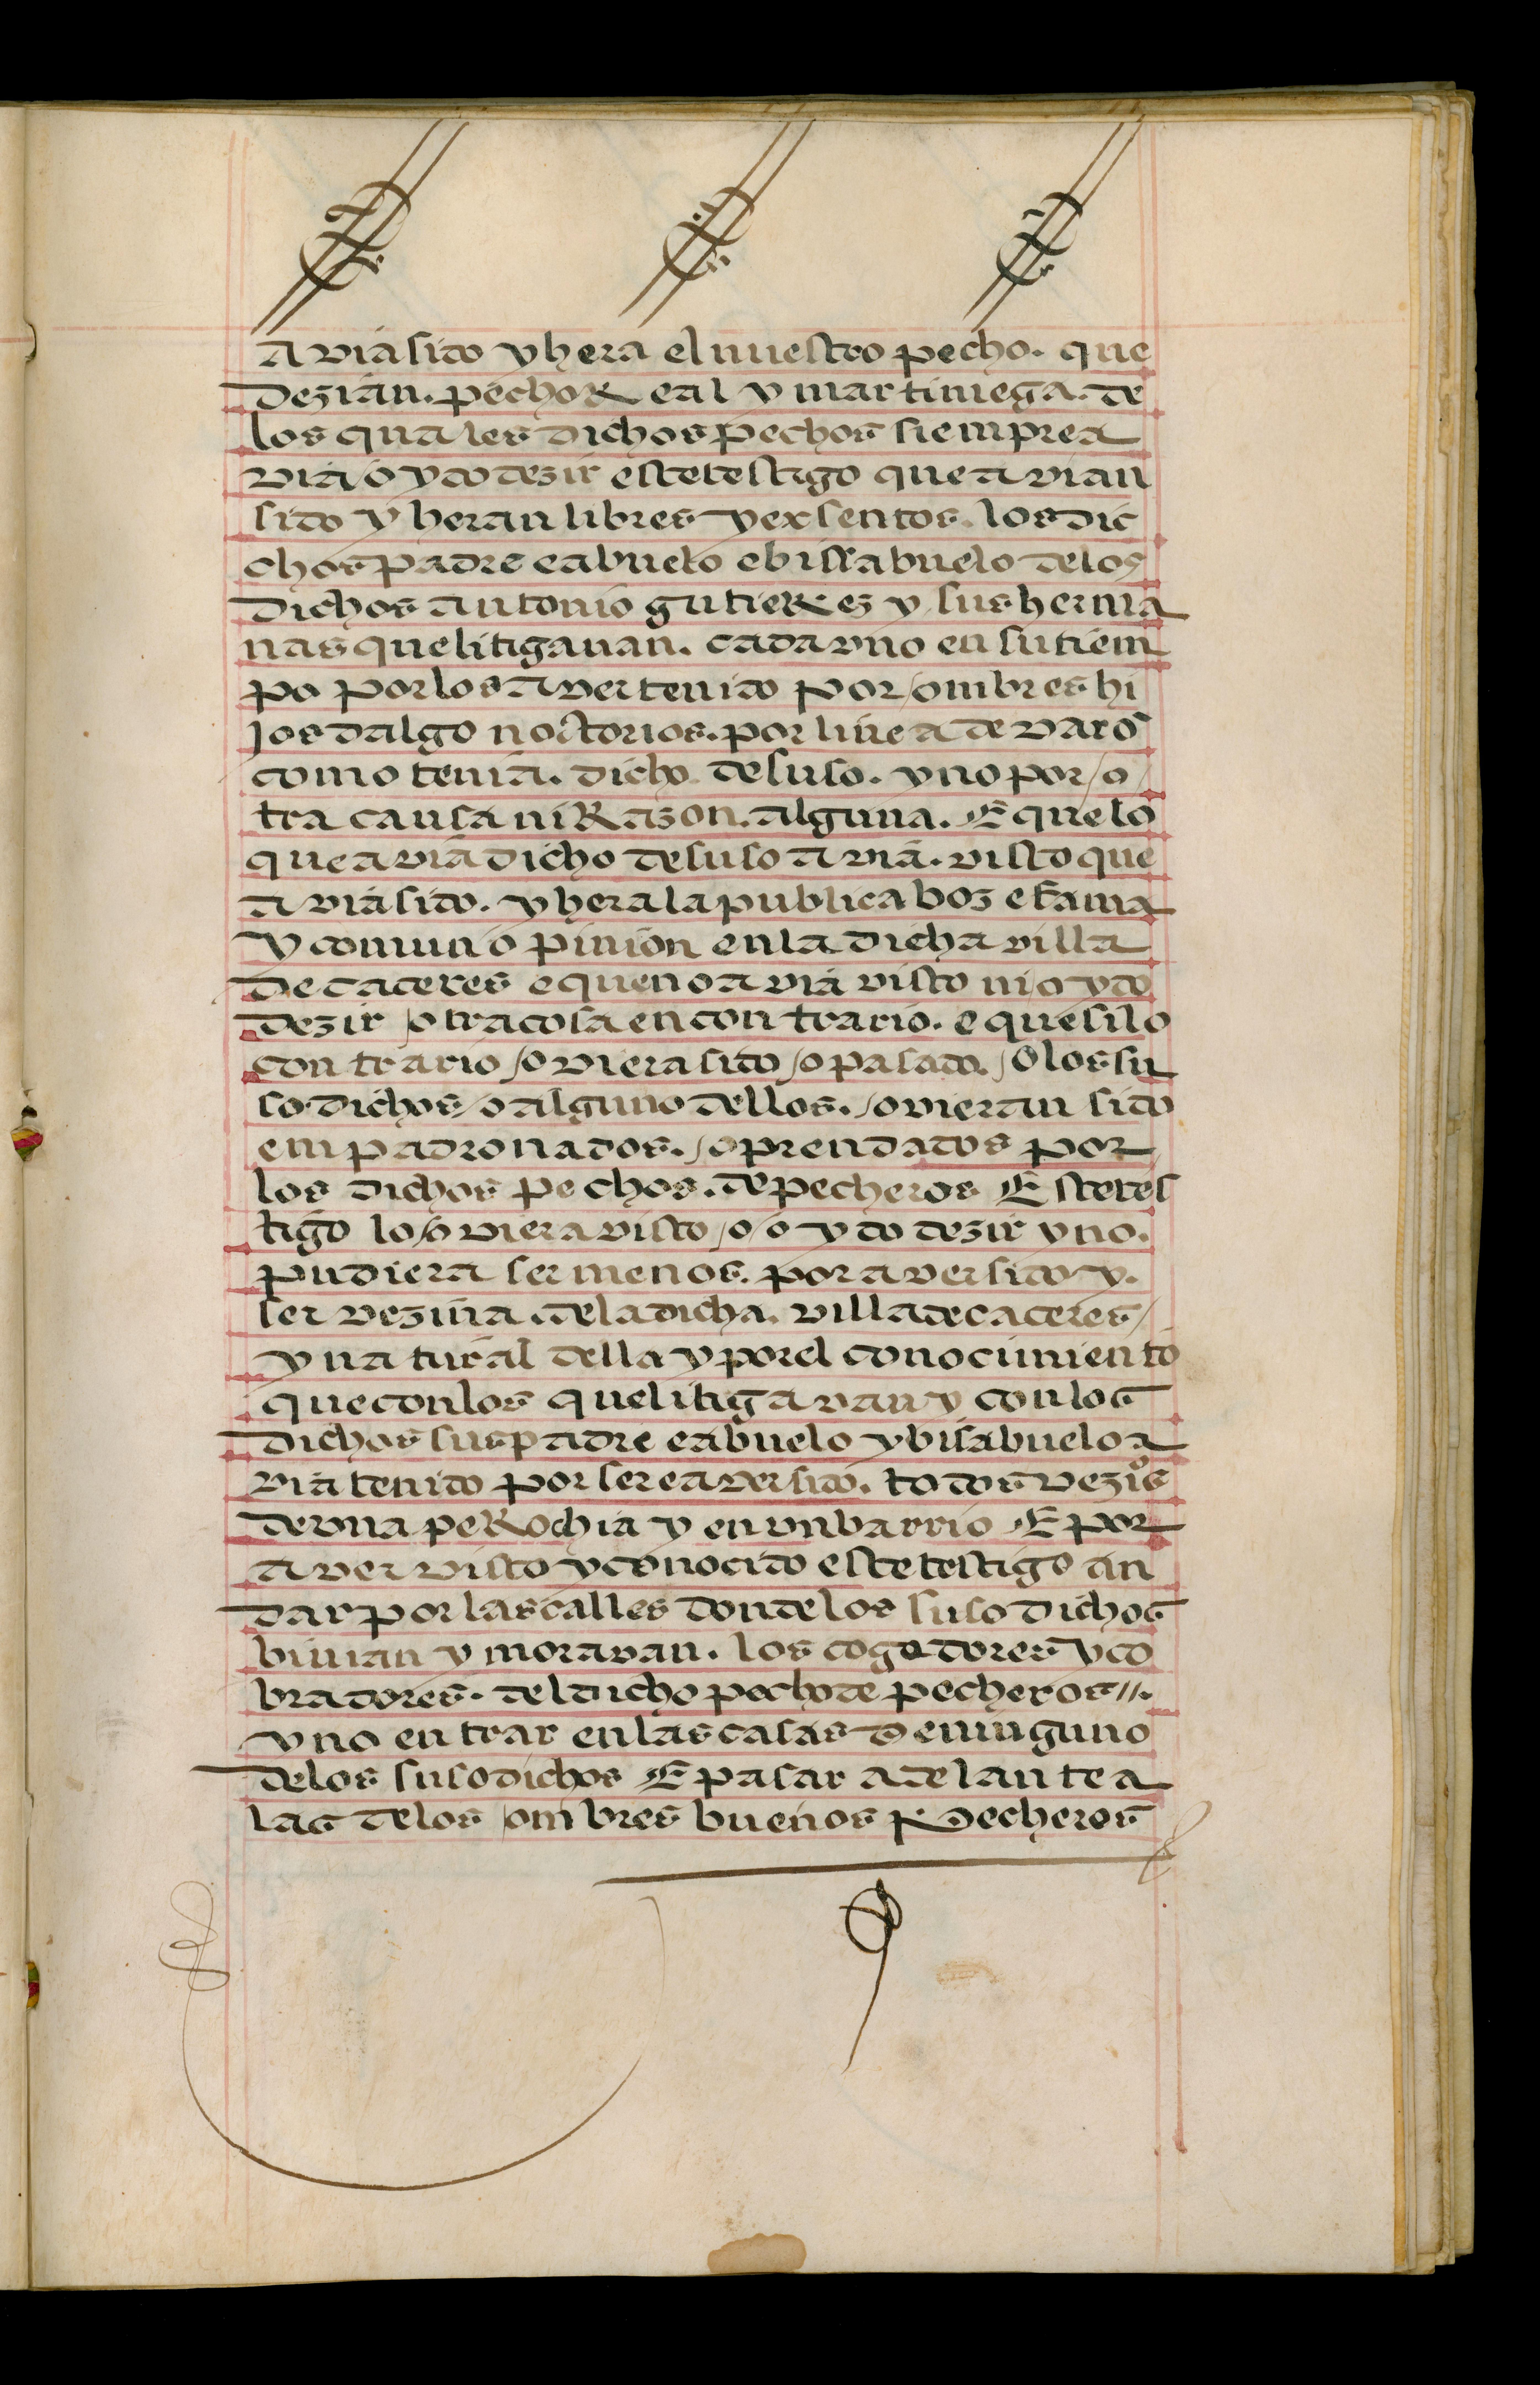 avia sido y hera el nuestro pecho. que
dezian. pecho Real y martiniega. de
los quales dichos pechos siempre a
via oydo dezir este testigo que avian
sido y heran libres y exsentos. los dic
chos padre e abuelo e bissabuelo de los
dichos antonio gutieRez y sus herma
nas que litigauan. cada vno en su tiem
po por los aver tenido por ombres hi
jos dalgo noctorios. por linea de varō
como tenia. dicho de suso. y no por o
tra causa ni Razon. alguna. E que lo
que avia dicho de suso avia. visto que
avia sido. y hera la publica boz e fama
y comun opinion en la dicha villa
de caceres e que no avia visto ni oydo
dezir otra cosa en contrario. e que si lo
contrario oviera sido o pasado. O los su
sodichos o alguno dellos. ovieran sido
empadronados. o prendados por
los dichos pechos. de pecheros Este tes
tigo lo oviera visto o oydo dezir y no.
pudiera ser menos. por aver sido y.
ser vezina. de la dicha. villa de caceres
y natural della y por el conocimiento
que con los que litigavan y con los
dichos sus padre e abuelo y bisabuelo a
via tenido por ser e aver sido. todos vezi͠os
de vna peRochia y en vn barrio E por
aver visto y conocido este testigo an
dar por las calles donde los susodichos
biuian y moravan. los cogedores y co
bradores. del dicho pecho de pecheros //.
y no entrar en las casas de ninguno
de los susodichos E pasar adelante a
las de los ombres buenos pecheros